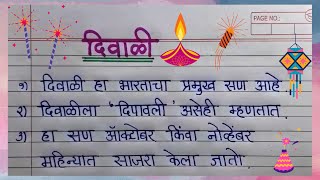 PAGE NO.:
दिवाळी
१) दिवाळी हा भारताचा प्रमुख सण आहे
२) दिवाळीला 'दिपावली' असेही म्हणतात.
३) हा सण ऑक्टोबर किंवा नोव्हेंबर
महिन्यात साजरा केला जातो.